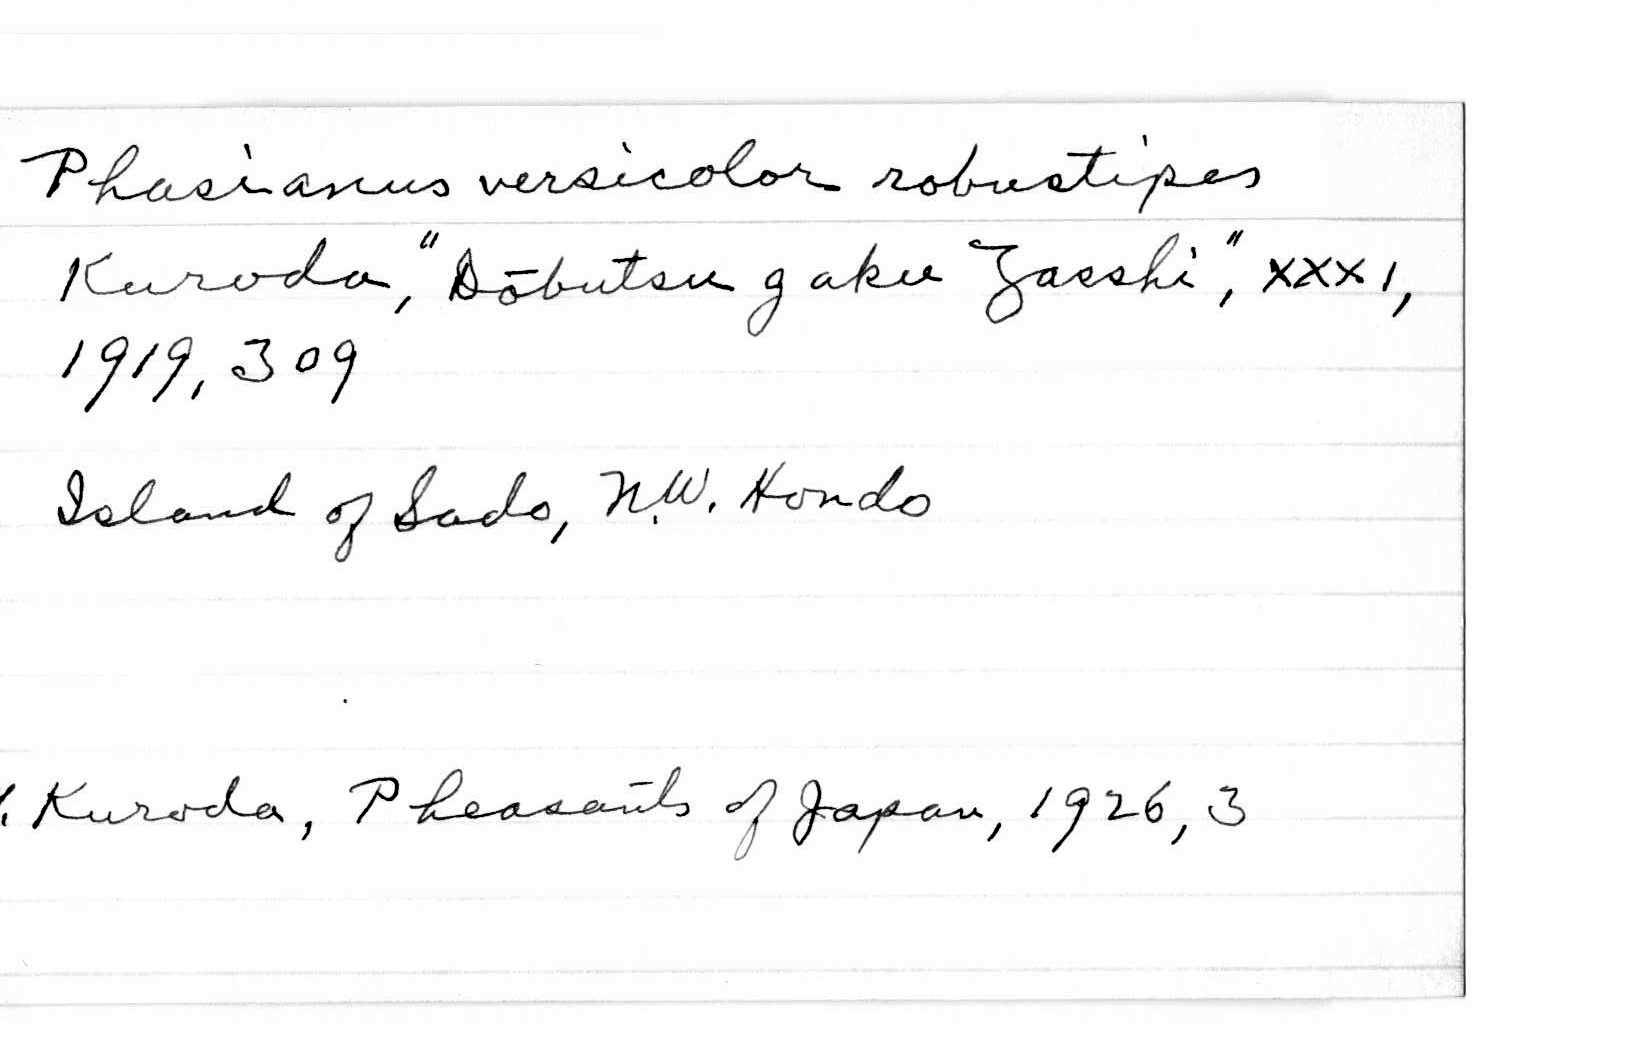 Phasianus versicolor robustipes
Kuroda, "Dōbutsu gaku Zasshi", XXXI,
1919, 309
Island of Sado, N.W. Hondo
Kuroda, Pheasants of Japan, 1926, 3